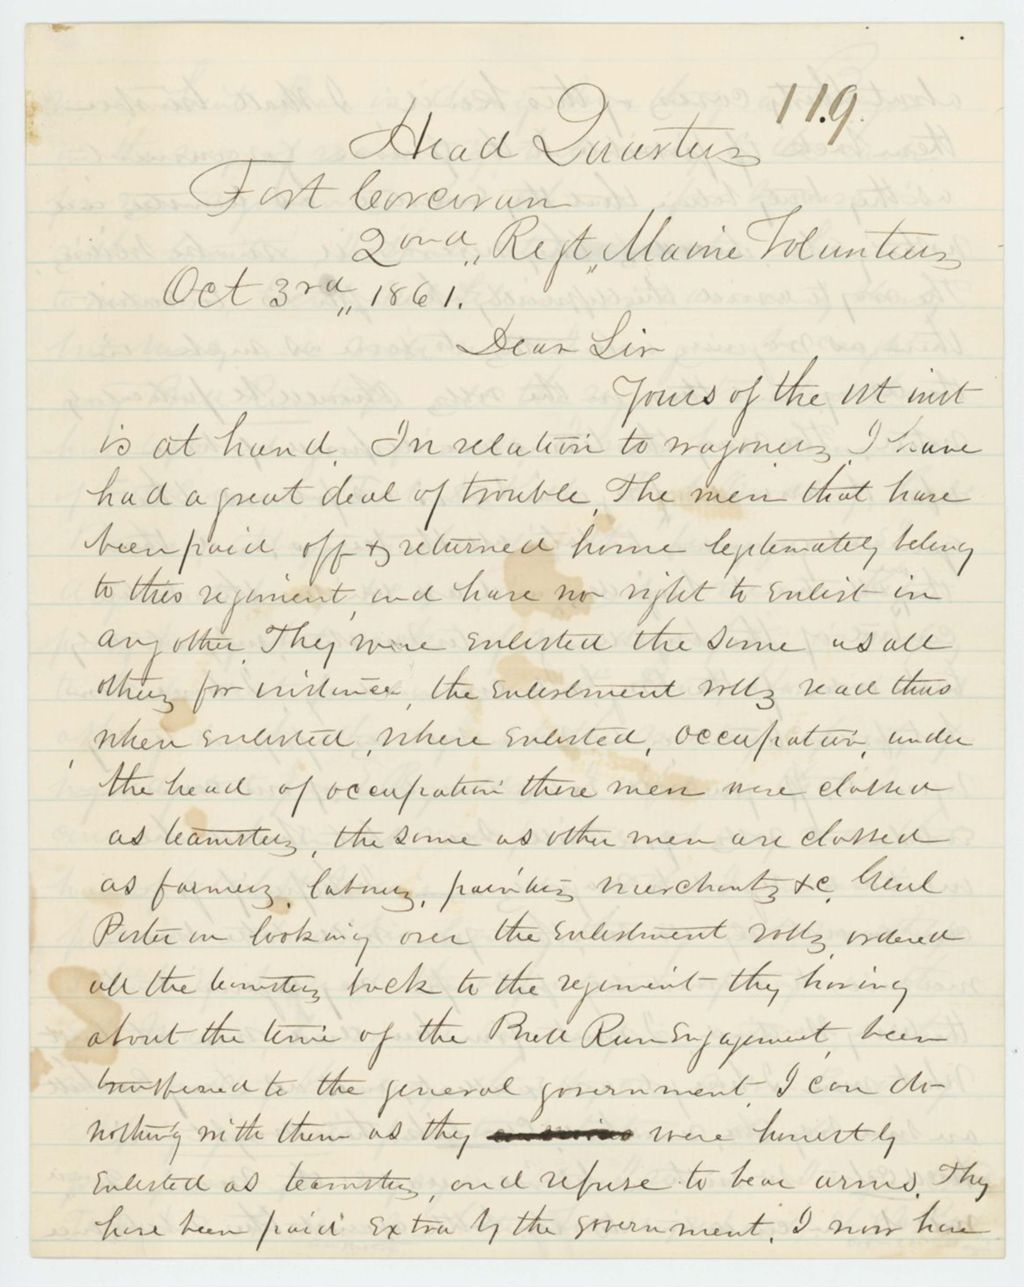 119.
Head Quarters
Fort Corcoran
2ond,, Regt,, Maine Volunteers
Oct 3rd,, 1861.
Dear Sir
Yours of the 1st inst
is at hand. In relation to wagoners, I have
had a great deal of trouble, The men that have
been paid off & returned home legitemately belong
to this regiment, and have no right to enlist in
any other. They were enlisted the same as all
others, for instance, the enlistment rolls read thus
when enlisted, where enlisted, occupation, under
the head of occupation these men were classed
as teamsters, the same as other men are classed
as farmers, laborers, painters, merchants &c, Genl
Porter on looking over the enlistment rolls, ordered
all the teamsters back to the regiment they having
about the time of the Bull Run Engagement, been
transferred to the general government. I can do
nothing with them as they were honestly
enlisted as teamsters, and refuse to bear arms. They
have been paid extra by the government. I now have